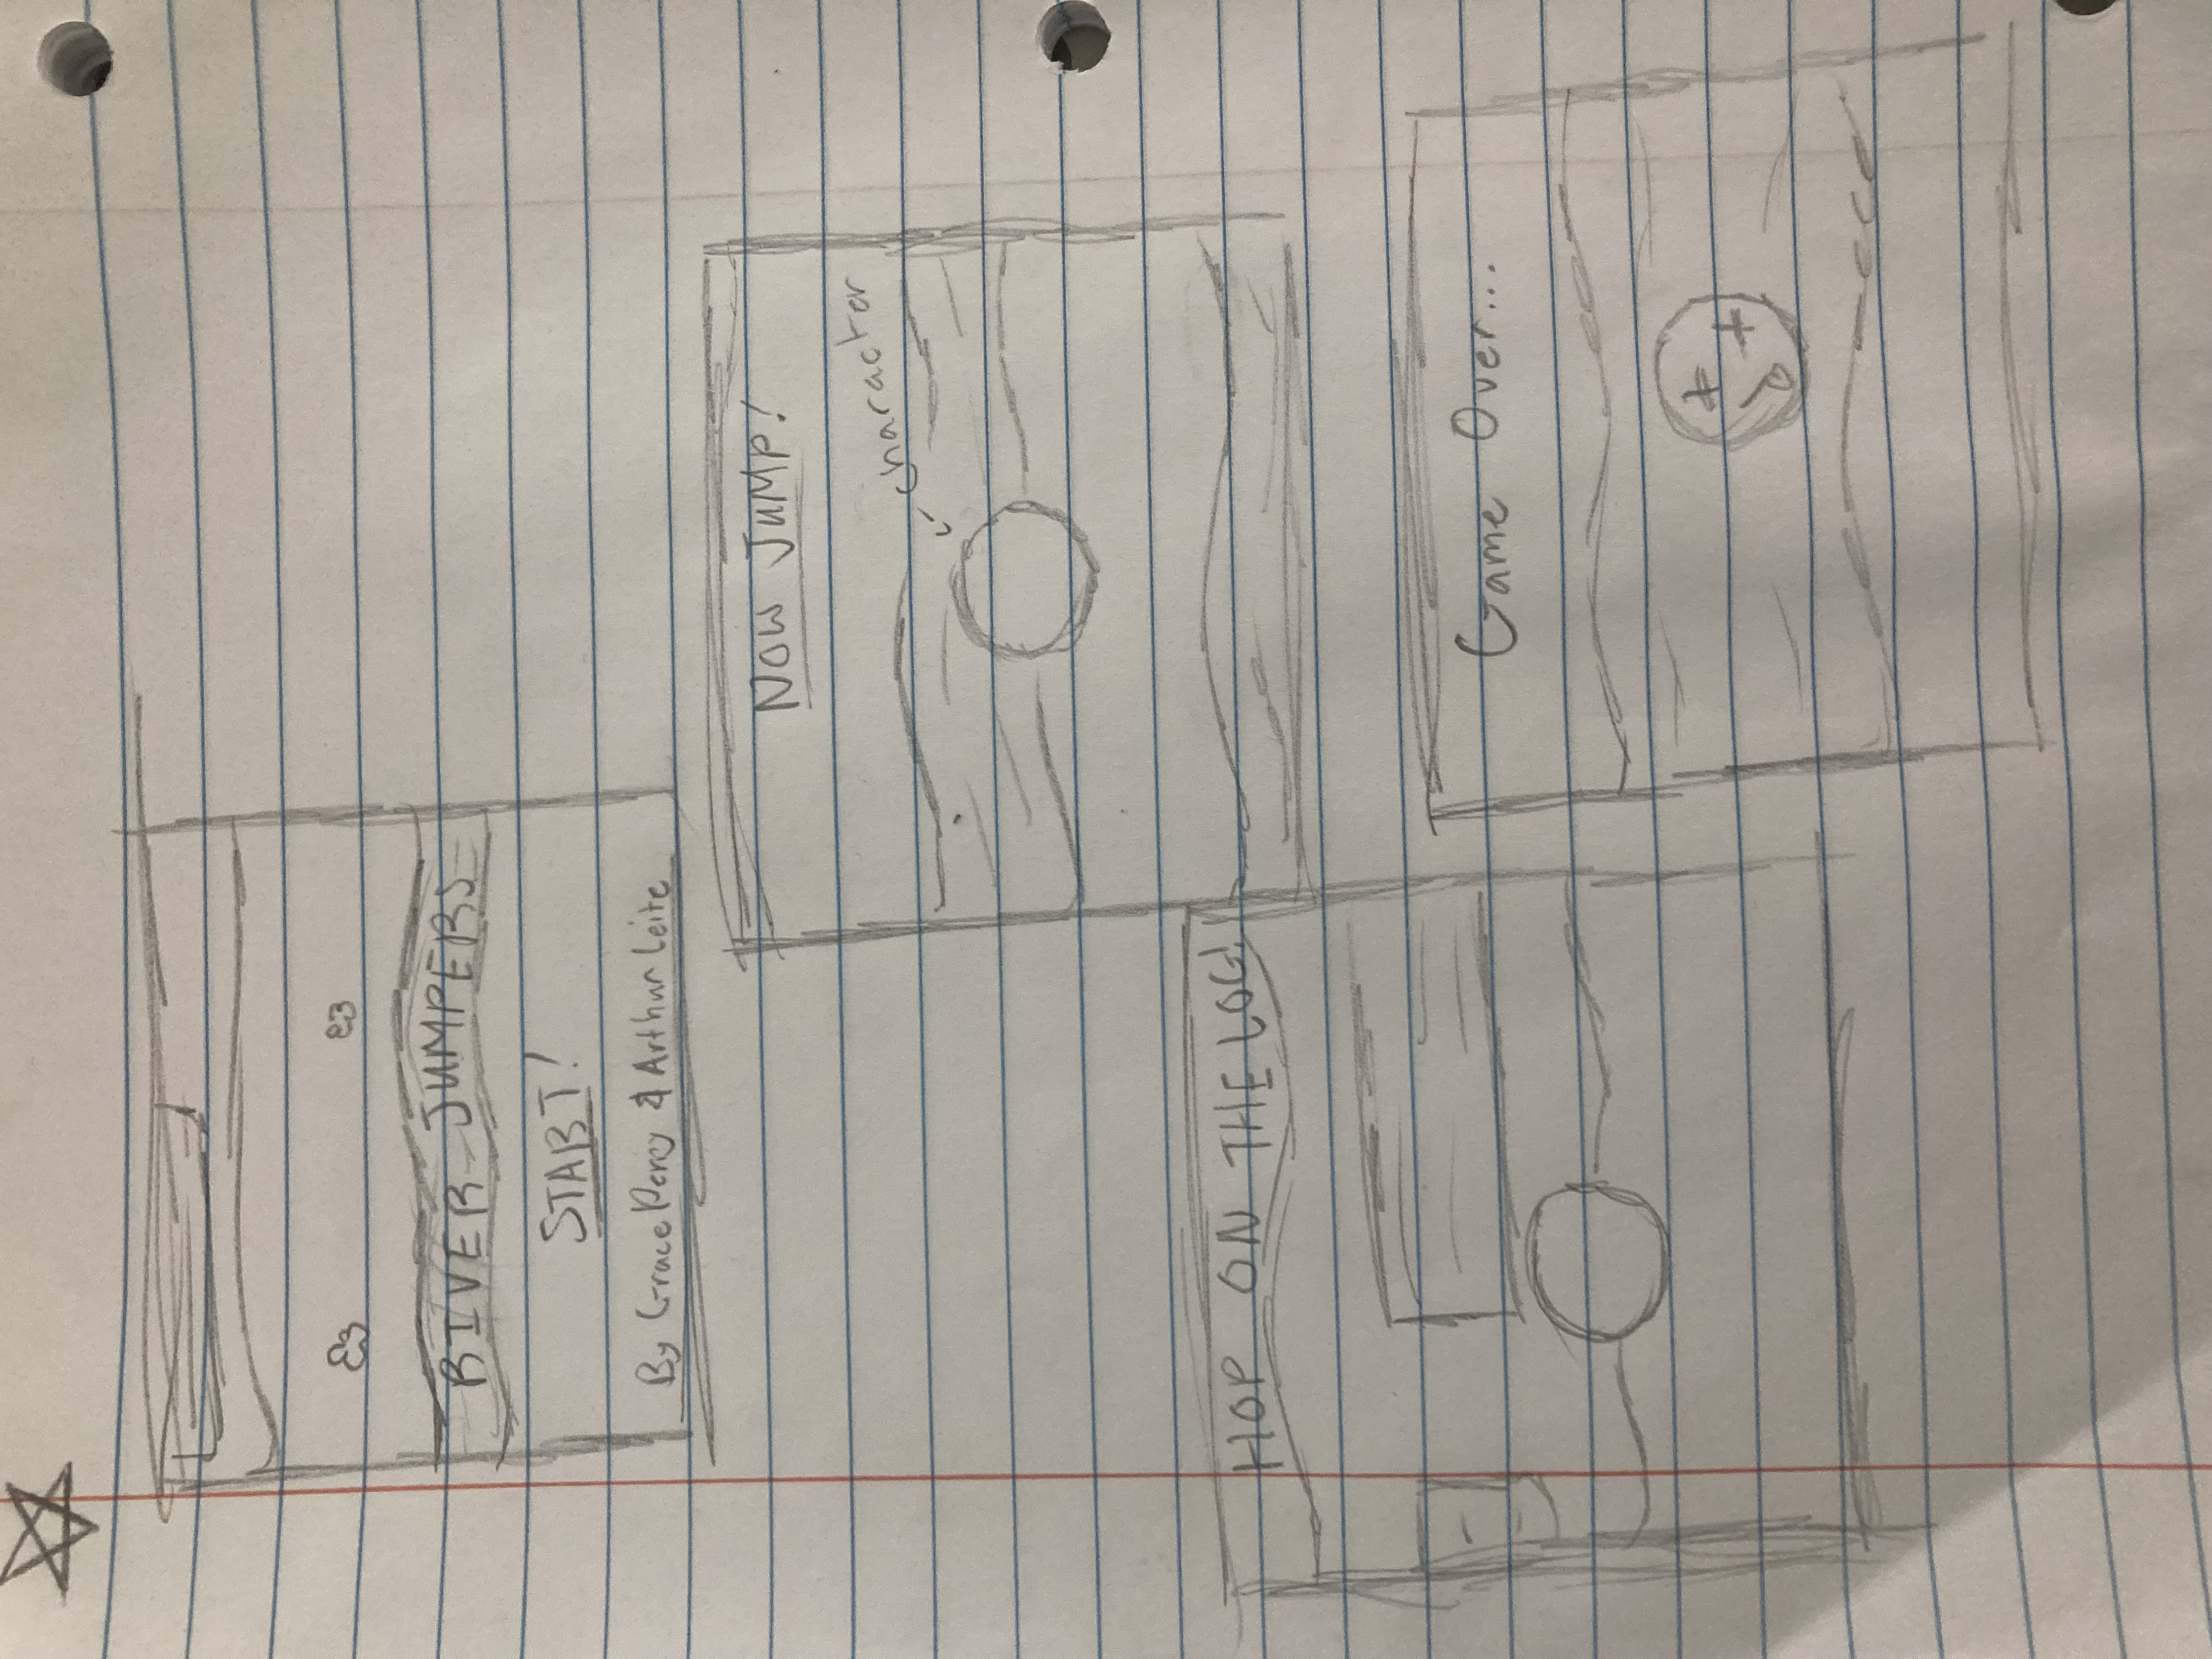 RIVER JUMPERS
START!
By Grace Percy & Arthur Leite
NOW JUMP!
character
HOP ON THE LOG!
Game Over...